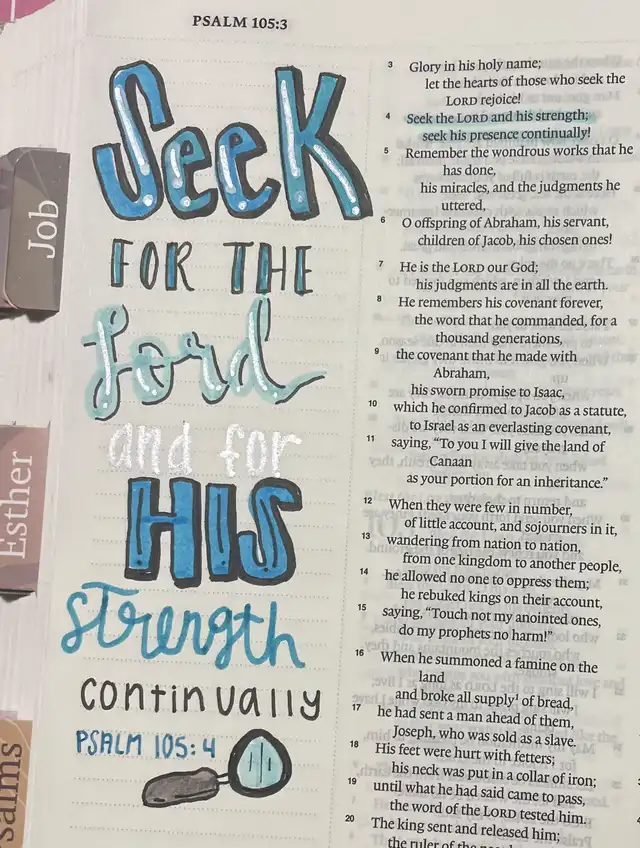 PSALM 105:3
Job
Esther
salms
Seek
FOR THE
Lord
and for
HIS
strength
continually
PSALM 105:4
3 Glory in his holy name;
let the hearts of those who seek the
LORD rejoice!
4 Seek the LORD and his strength;
seek his presence continually!
5 Remember the wondrous works that he
has done,
his miracles, and the judgments he
uttered,
6 O offspring of Abraham, his servant,
children of Jacob, his chosen ones!
7 He is the LORD our God;
his judgments are in all the earth.
8 He remembers his covenant forever,
the word that he commanded, for a
thousand generations,
9 the covenant that he made with
Abraham,
his sworn promise to Isaac,
10 which he confirmed to Jacob as a statute,
to Israel as an everlasting covenant,
11 saying, “To you I will give the land of
Canaan
as your portion for an inheritance.”
12 When they were few in number,
of little account, and sojourners in it,
13 wandering from nation to nation,
from one kingdom to another people,
14 he allowed no one to oppress them;
he rebuked kings on their account,
15 saying, “Touch not my anointed ones,
do my prophets no harm!”
16 When he summoned a famine on the
land
and broke all supply¹ of bread,
17 he had sent a man ahead of them,
Joseph, who was sold as a slave.
18 His feet were hurt with fetters;
his neck was put in a collar of iron;
19 until what he had said came to pass,
the word of the LORD tested him.
20 The king sent and released him;
the ruler of the